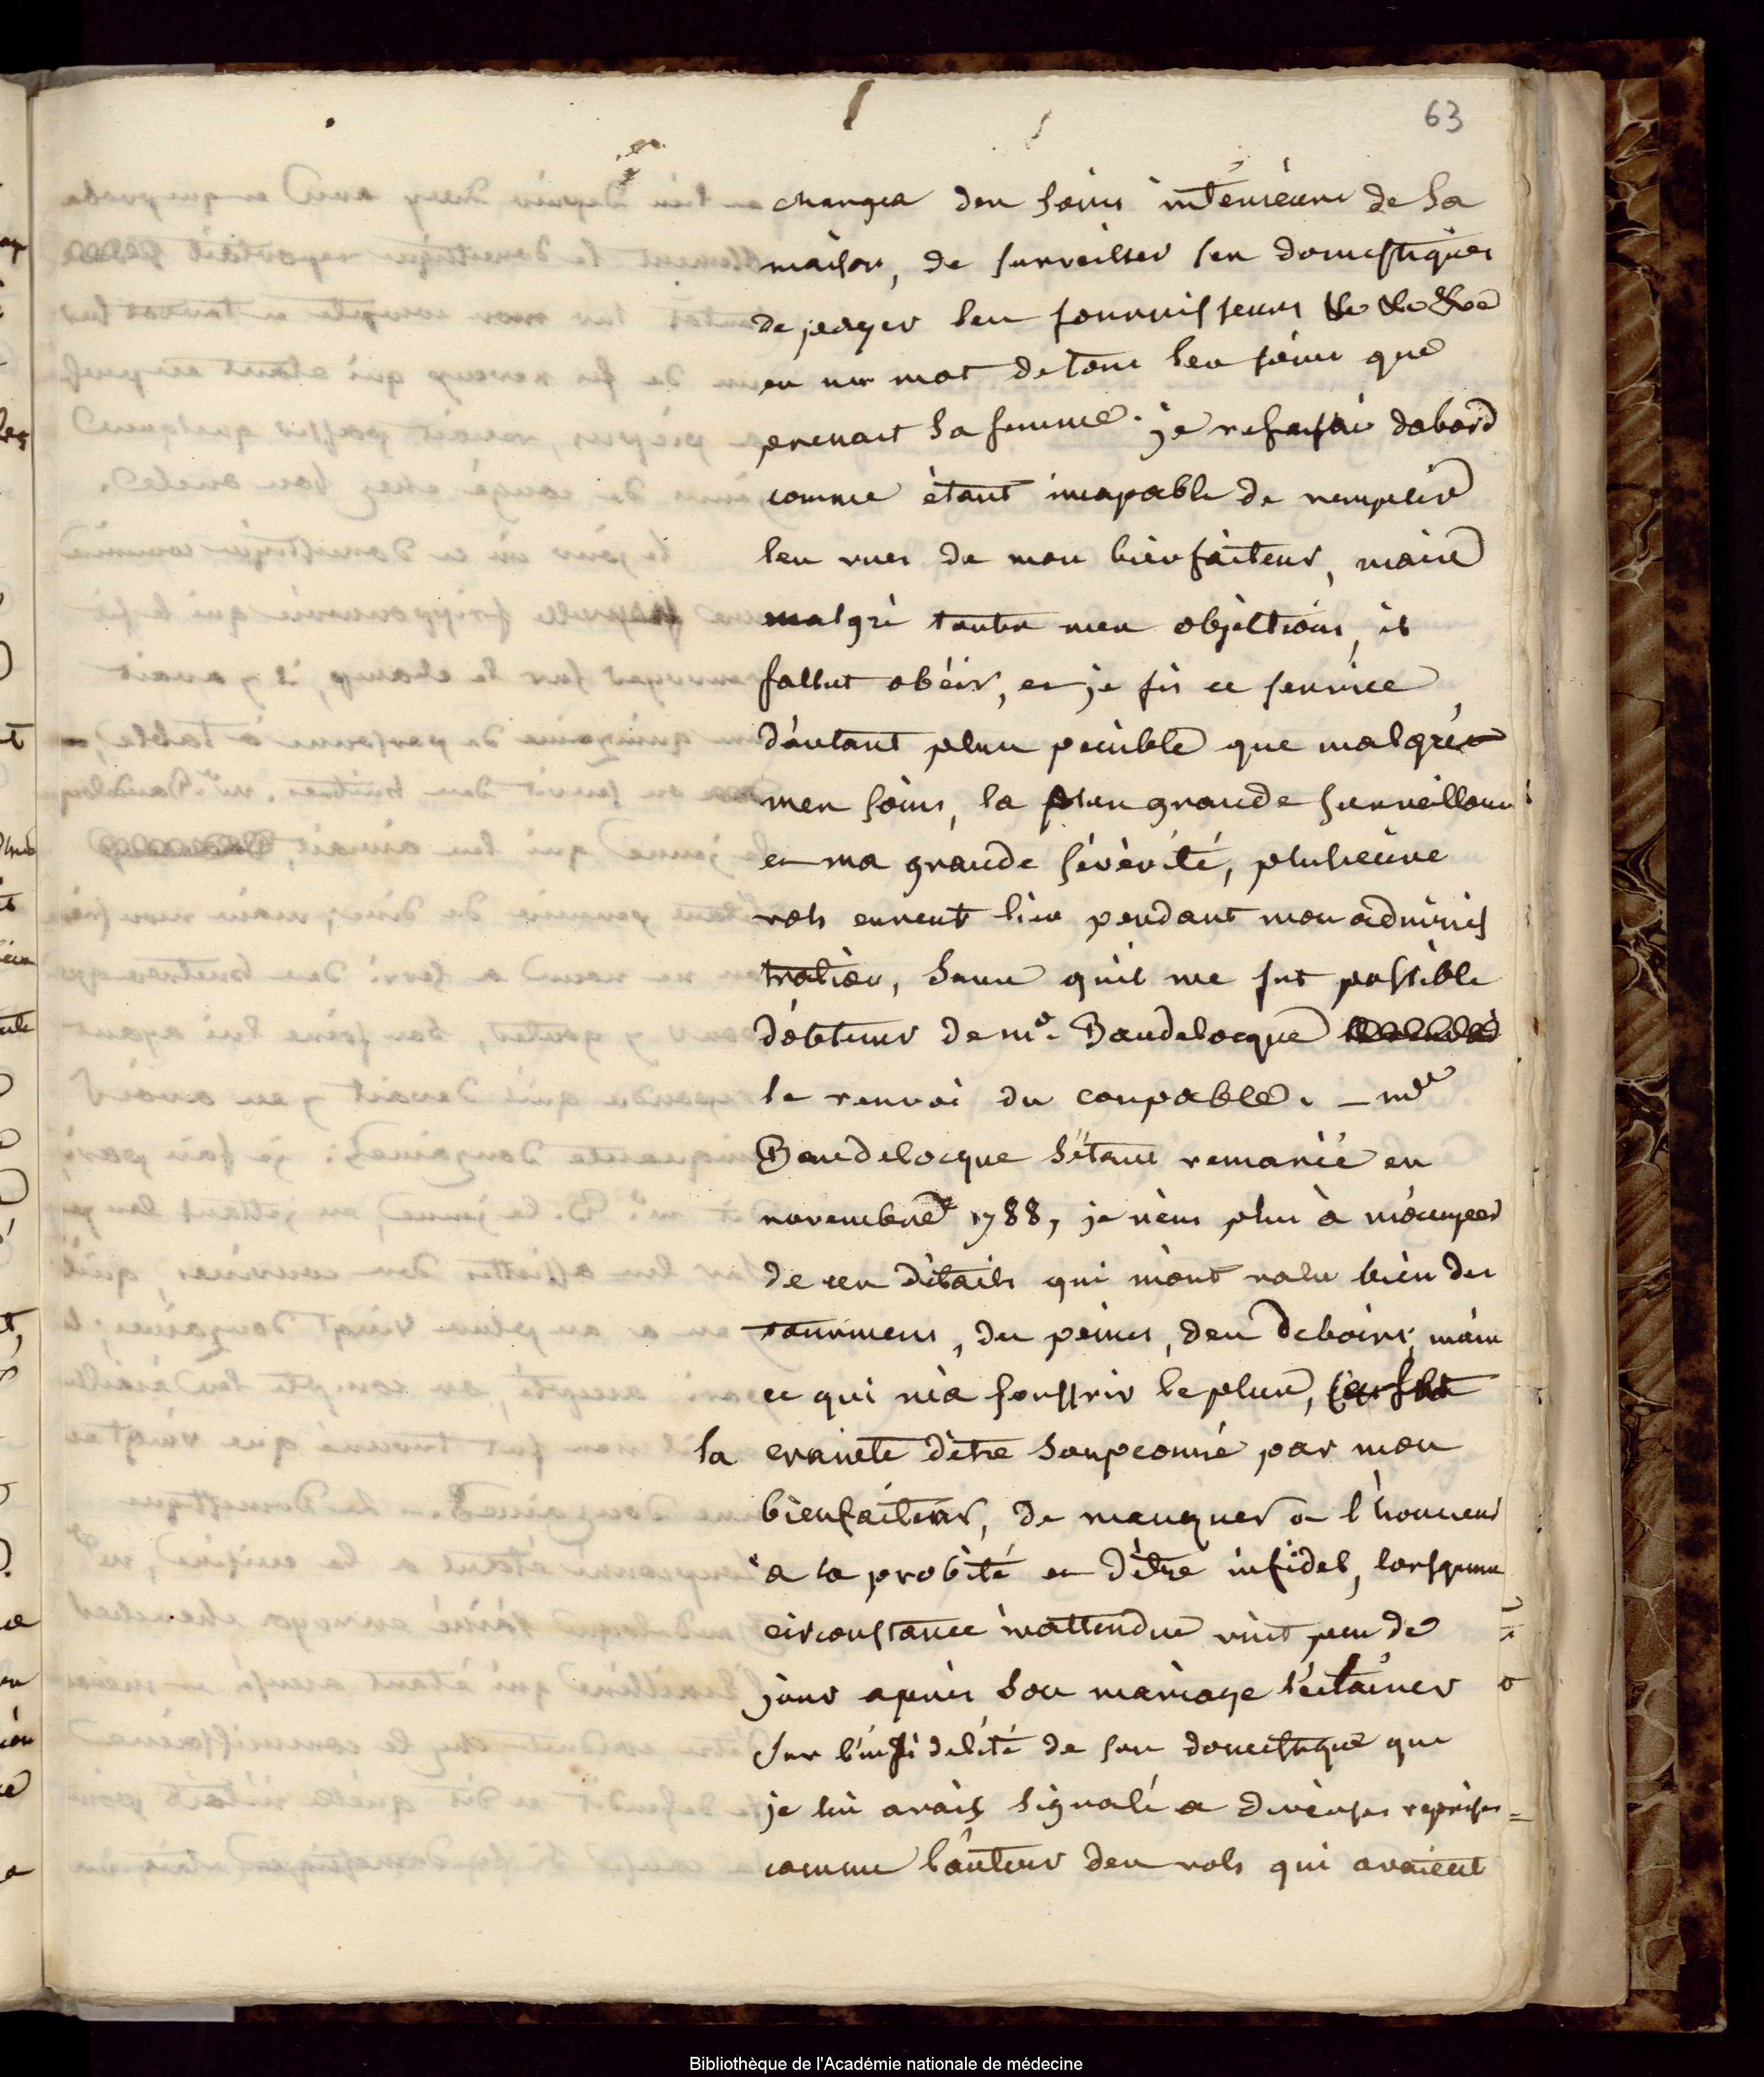 63
chargea des soins intérieurs de sa
maison, de surveiller ses domestiques
de payer les fournisseurs &c &c &c
en un mot de tous les soins que
prenait sa femme. je refusai dabord
comme étant incapable de remplir
les vues de mon bienfaiteur, mais
malgré toutes mes objections, il
fallut obéir, et je fis ce service
d'autant plus penible que malgré
mes soins, la plus grande surveillance
et ma grande sévèrité, plusieurs
vols eurent lieu pendant mon adminis
tration, sans quil me fut possible
d'obtenir de mr. Baudelocque
le renvoi du coupable. - mr
Baudelocque s'étant remarié en
novembre 1788, je n'eus plus à m'occuper
de ces détails qui m'ont valu bien des
tourmens, des peines, des deboirs, mais
ce qui m'a fait souffrir le plus,
la crainte d'être soupconné par mon
bienfaiteur, de manquer a l'honneur
a la probité et d'être infidel, lorsqu'une
circonstance inattendue vint peu de
jours après son mariage l'éclairer
sur l'infidélité de son domestique que
je lui avais signalé a diverses reprises
comme l'auteur des vols qui avaient
Bibliothèque de l'Académie nationale de médecine